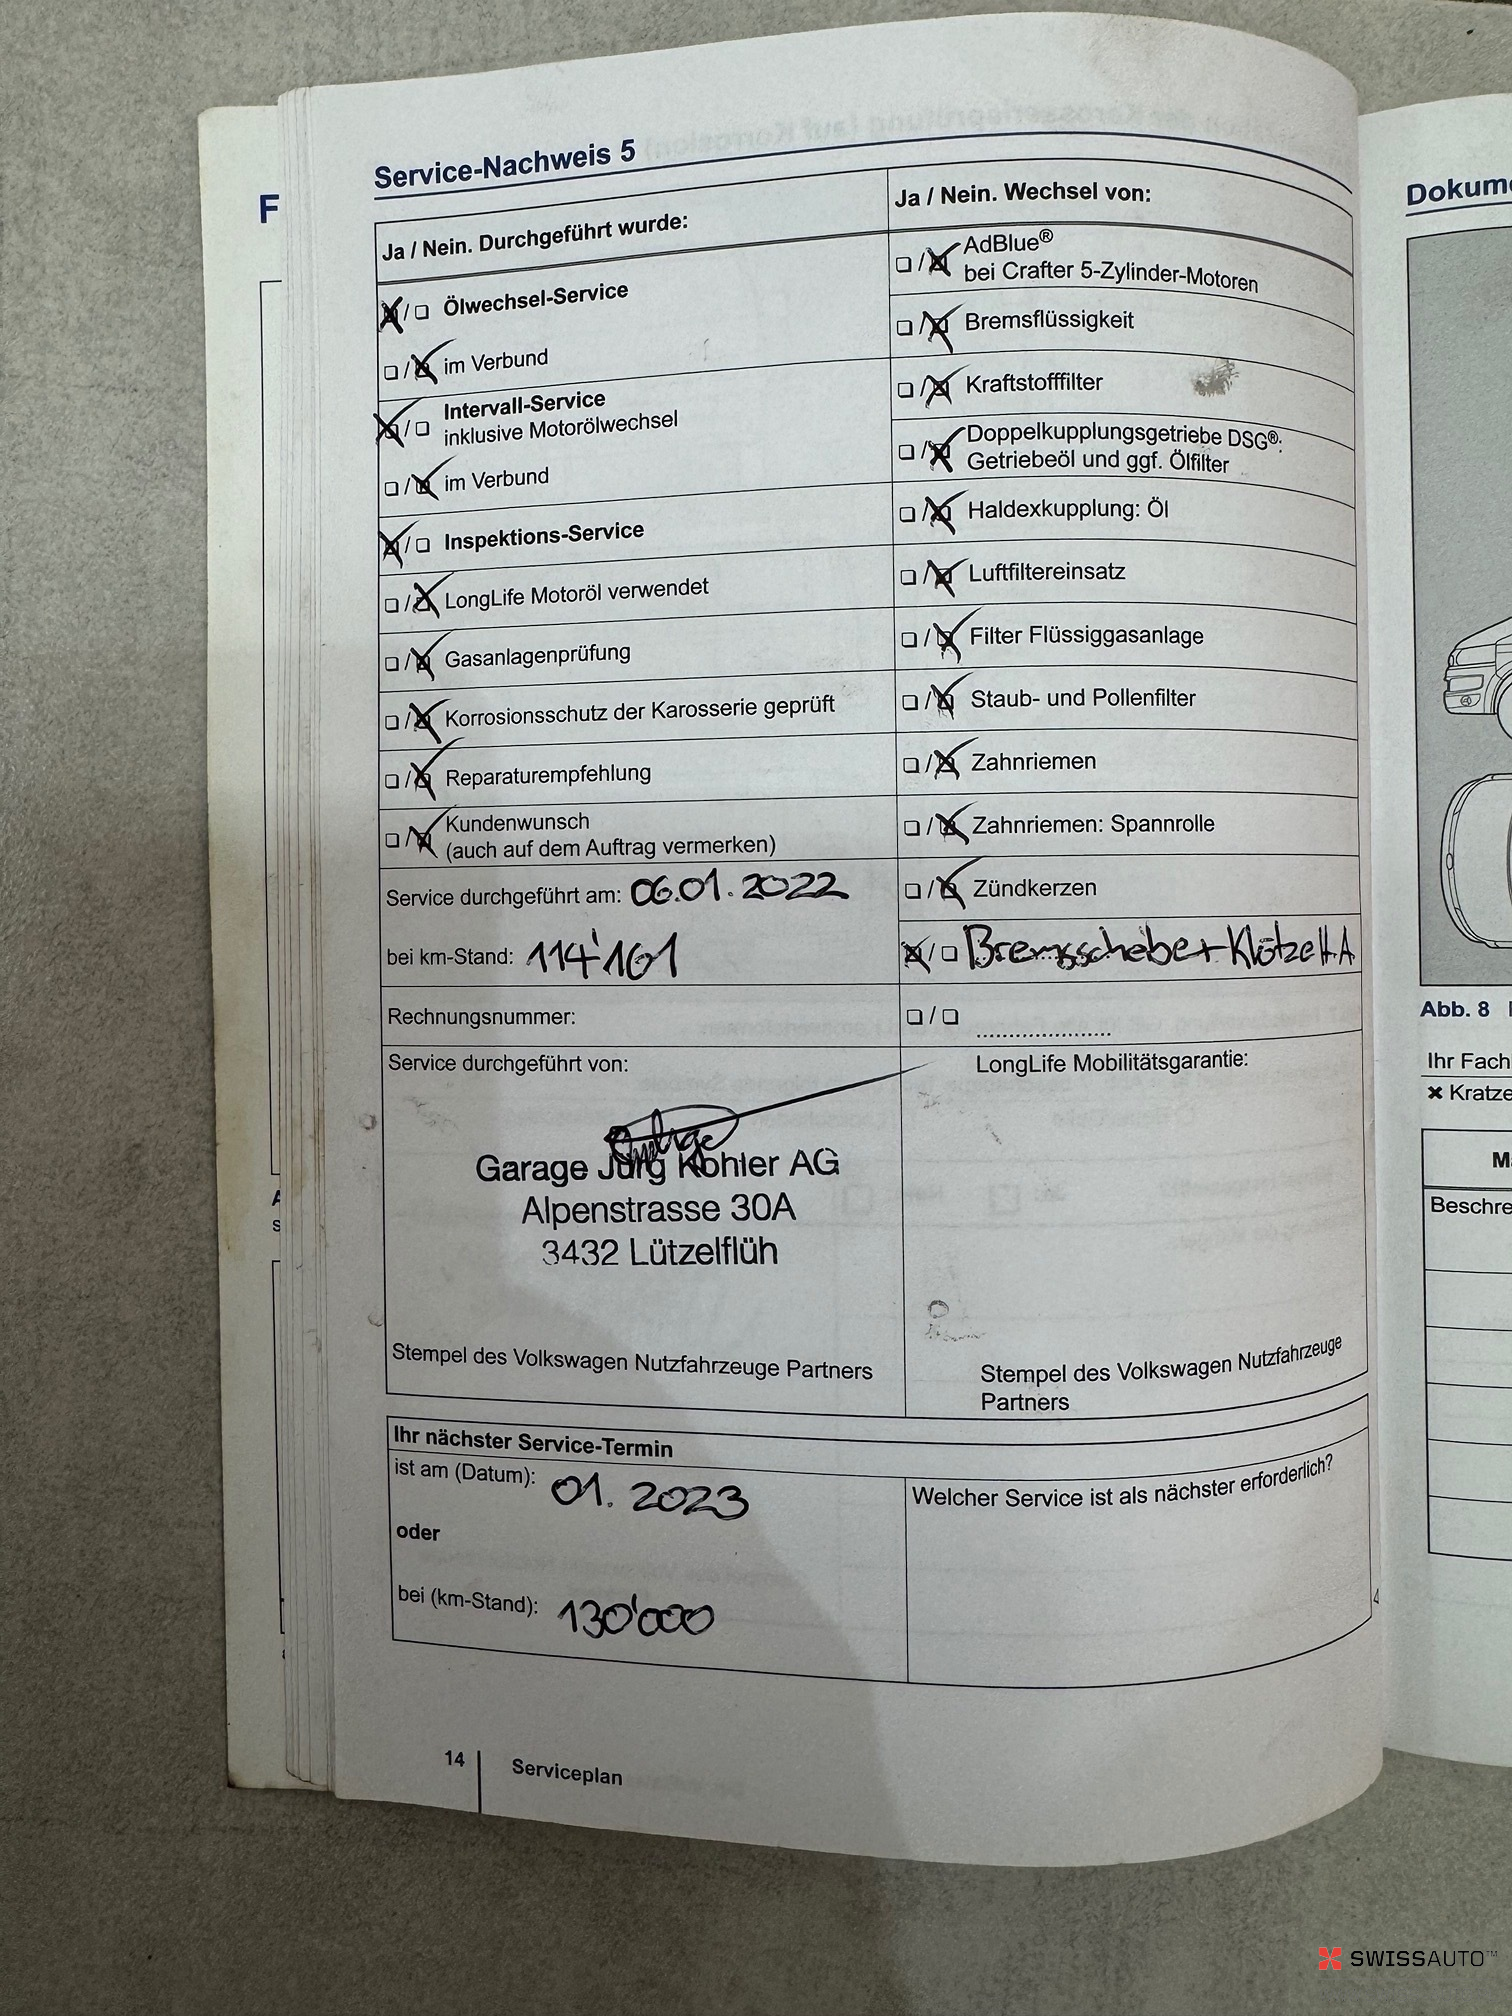 Service-Nachweis 5
Ja / Nein. Durchgeführt wurde:
Ölwechsel-Service
im Verbund
Intervall-Service
inklusive Motorölwechsel
im Verbund
Inspektions-Service
LongLife Motoröl verwendet
Gasanlagenprüfung
Korrosionsschutz der Karosserie geprüft
Reparaturempfehlung
Kundenwunsch
(auch auf dem Auftrag vermerken)
Service durchgeführt am: 06.01.2022
bei km-Stand: 114'161
Rechnungsnummer:
Service durchgeführt von:
Garage Jürg Kohler AG
Alpenstrasse 30A
3432 Lützelflüh
Stempel des Volkswagen Nutzfahrzeuge Partners
Ja / Nein. Wechsel von:
AdBlue®
bei Crafter 5-Zylinder-Motoren
Bremsflüssigkeit
Kraftstofffilter
Doppelkupplungsgetriebe DSG®:
Getriebeöl und ggf. Ölfilter
Haldexkupplung: Öl
Luftfiltereinsatz
Filter Flüssiggasanlage
Staub- und Pollenfilter
Zahnriemen
Zahnriemen: Spannrolle
Zündkerzen
Bremsscheibe + Klötze H.A
LongLife Mobilitätsgarantie:
Stempel des Volkswagen Nutzfahrzeuge
Partners
Ihr nächster Service-Termin
ist am (Datum): 01.2023
oder
bei (km-Stand): 130'000
Welcher Service ist als nächster erforderlich?
14
Serviceplan
F
Abb. 8
Ihr Fach
Kratze
Beschre
SWISSAUTO™